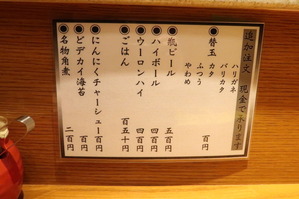 追加注文 現金で承ります
ハリガネ
バリカタ
カタ
ふつう
やわめ
●替玉 百円
●瓶ビール 五百円
●ハイボール 四百円
●ウーロンハイ 四百円
●ごはん 百五十円
●にんにくチャーシュー 百円
●ビデカイ海苔 百円
●名物角煮 二百円